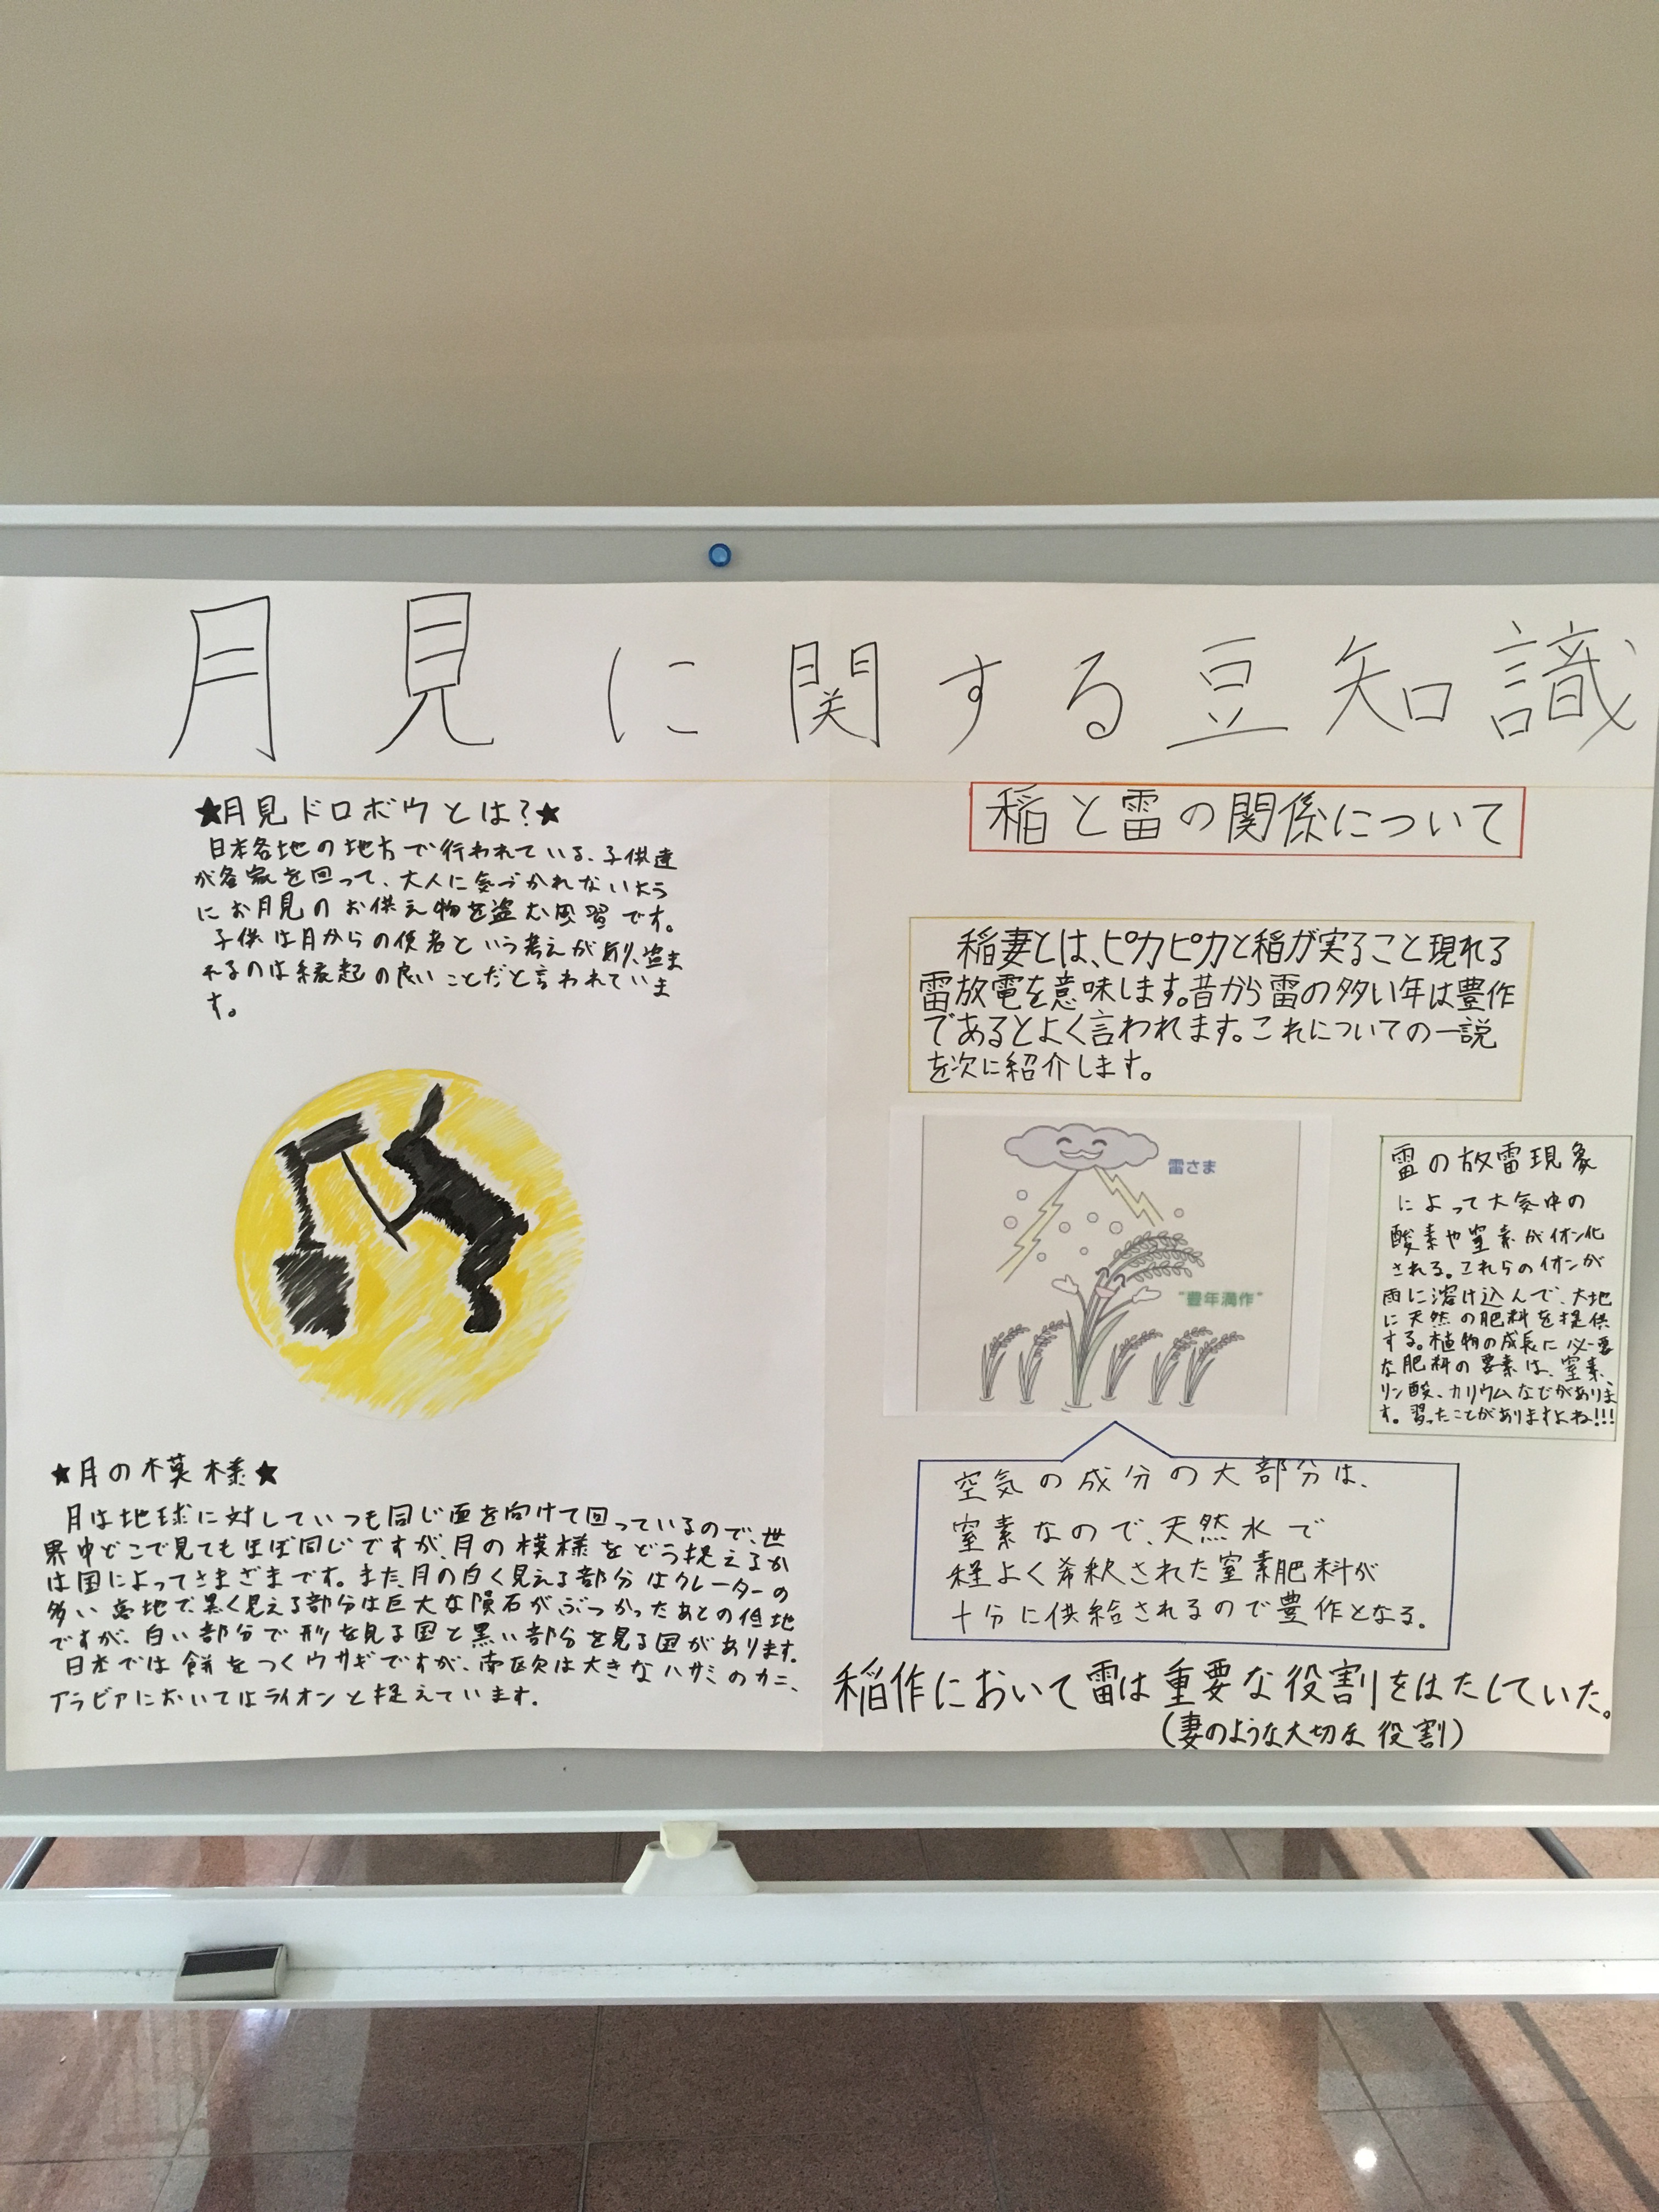 月見に関する豆知識
★月見ドロボウとは?★
日本各地の地方で行われている、子供達
が各家を回って、大人に気づかれないよう
にお月見のお供え物を盗む風習です。
子供は月からの使者という考えがあり、盗ま
れるのは縁起の良いことだと言われていま
す。
★月の模様★
月は地球に対していつも同じ面を向けて回っているので、世
界中どこで見てもほぼ同じですが、月の模様をどう捉えるか
は国によってさまざまです。また、月の白く見える部分はクレーターの
多い高地で、黒く見える部分は巨大な隕石がぶつかったあとの低地
ですが、白い部分で形を見る国と黒い部分を見る国があります。
日本では餅をつくウサギですが、南欧は大きなハサミのカニ、
アラビアにおいてはライオンと捉えています。
稲と雷の関係について
稲妻とは、ピカピカと稲が実ること現れる
雷放電を意味します。昔から雷の多い年は豊作
であるとよく言われます。これについての一説
を次に紹介します。
雷さま
"豊年満作"
雷の放雷現象
によって大気中の
酸素や窒素がイオン化
される。これらのイオンが
雨に溶け込んで、大地
に天然の肥料を提供
する。植物の成長に必要
な肥料の要素は、窒素、
リン酸、カリウムなどがありま
す。習ったことがありますよね!!!
空気の成分の大部分は、
窒素なので、天然水で
程よく希釈された窒素肥料が
十分に供給されるので豊作となる。
稲作において雷は重要な役割をはたしていた。
(妻のような大切な役割)